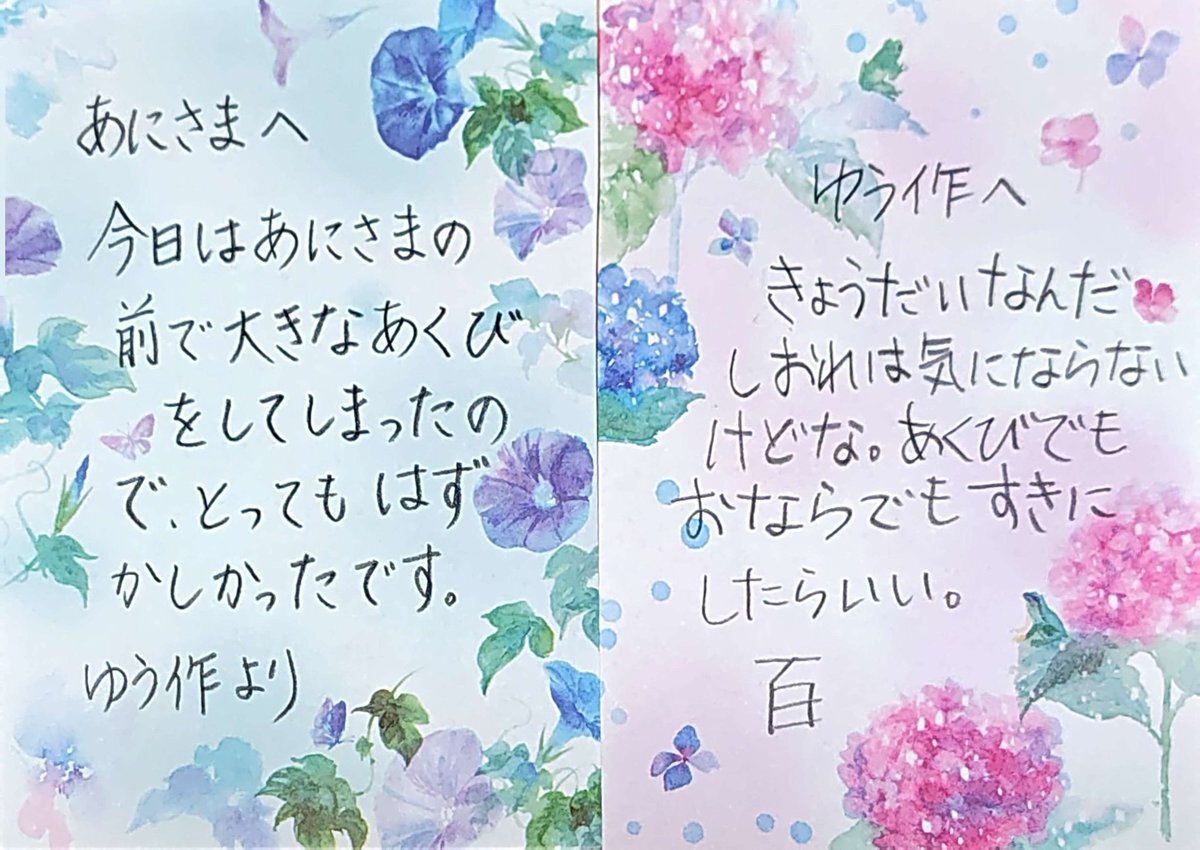 あにさまへ
今日はあにさまの
前で大きなあくび
をしてしまったの
で、とっても はず
かしかったです。
ゆう作より
ゆう作へ
きょうだいなんだ
しおれは気にならない
けどな。あくびでも
おならでもすきに
したらいい。
百